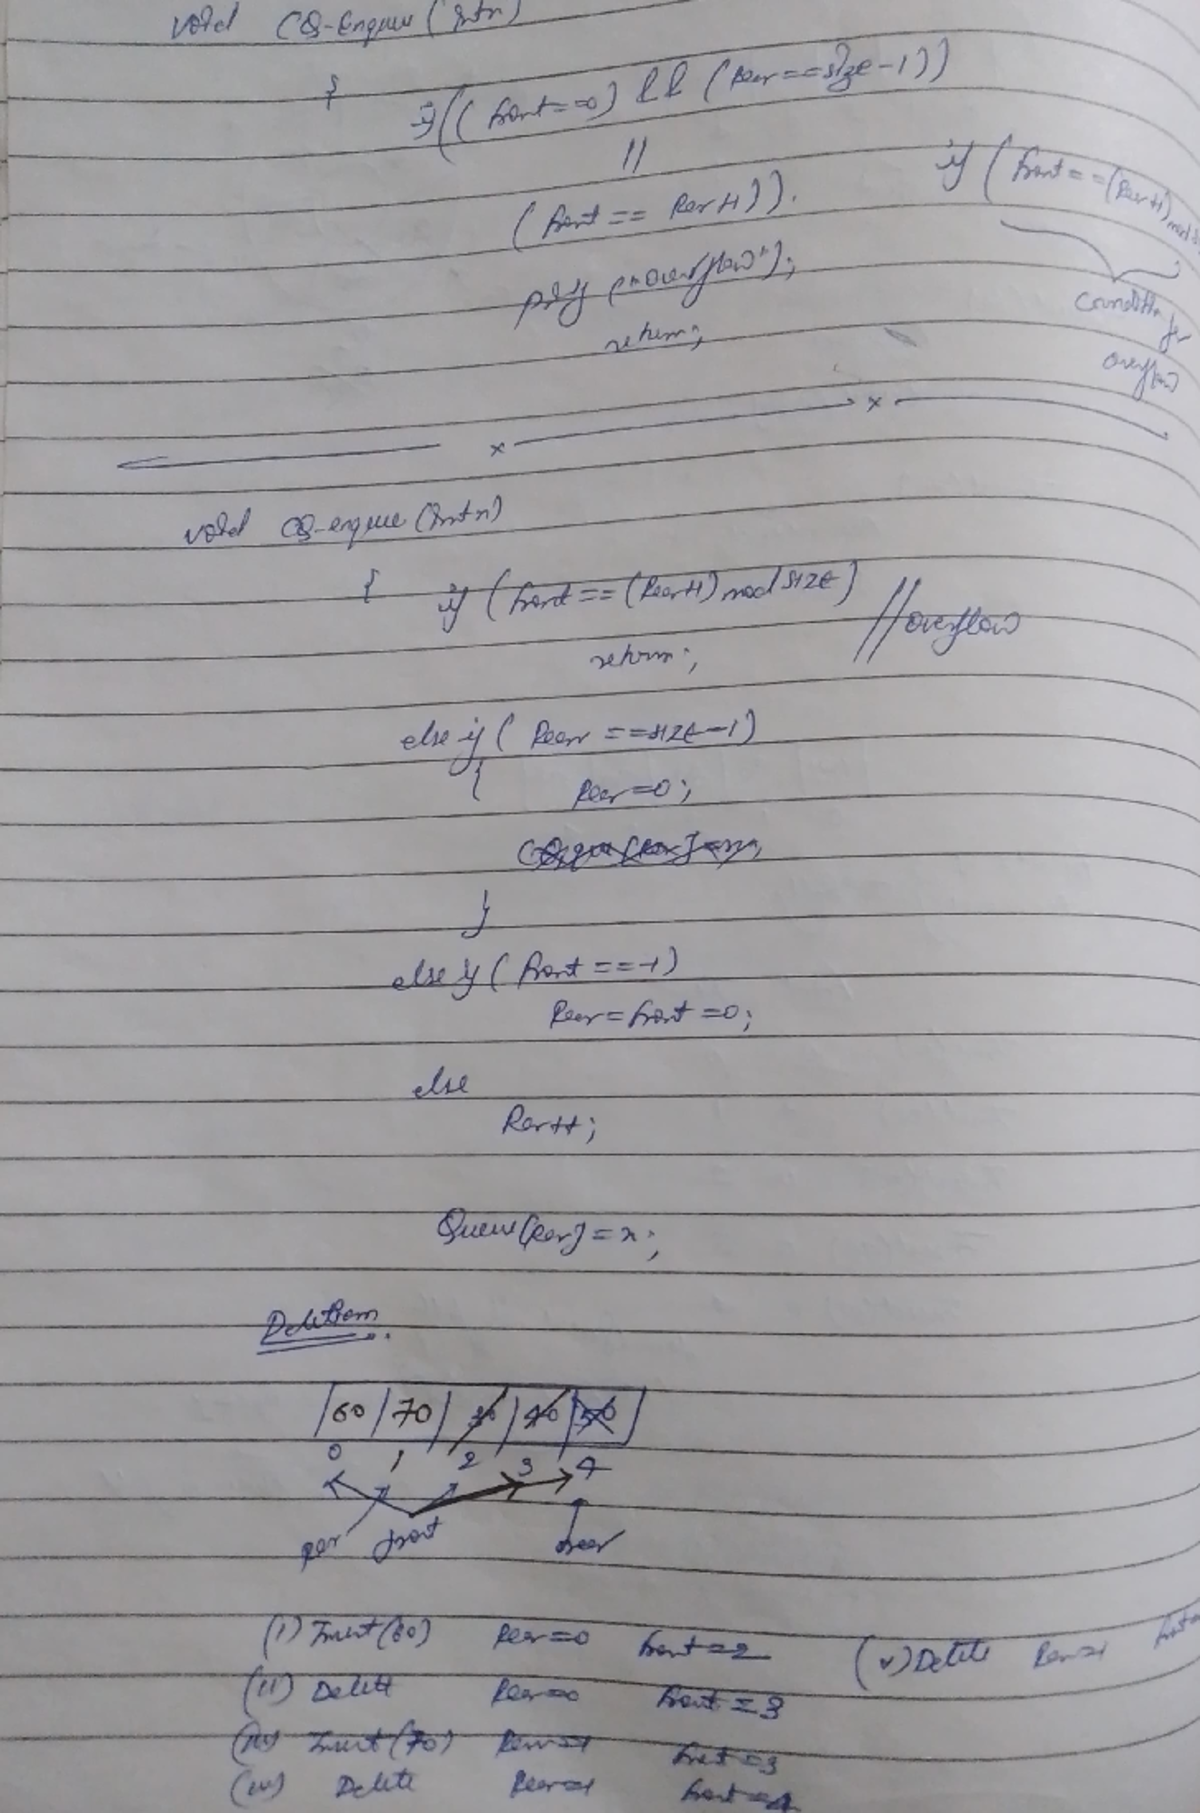 void CQ-Enqueue (int x)
{
if ((front==0) && (Rear==size-1))
||
(front == Rear+1)).
printf ("overflow");
return;
if (front==(Rear+1) mod
Condition for
overflow
void CQ-enqueue (int x)
{ if (front == (Rear+1) mod SIZE) // overflow
return;
else if (Rear ==SIZE-1)
{ Rear=0;
}
else if (front ==-1)
Rear=front =0;
else
Rear++;
Queue[Rear] = x;
Deletion
60 70 30 40 50
0 1 2 3 4
Rear front Rear
(i) Insert(60) Rear=0 front=2
(ii) Delete Rear=0 front=3
(iii) Insert(70) Rear=1 front=3
(iv) Delete Rear=1 front=4
(v) Delete Rear=1